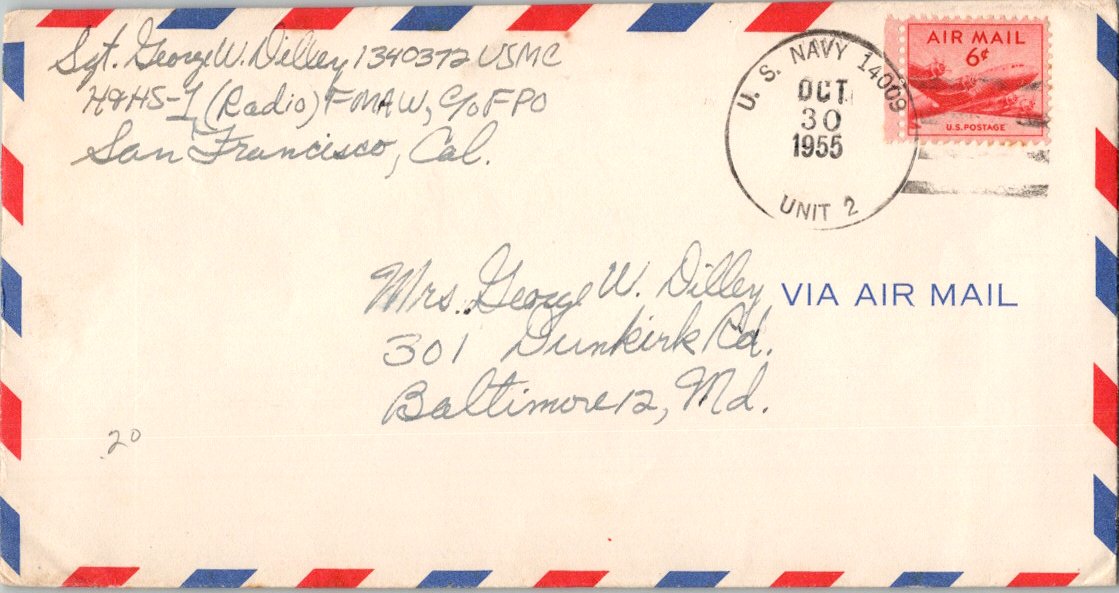 Sgt. George W. Dilley 1340372 USMC
H&HS-1 (Radio) FMAW, c/o FPO
San Francisco, Cal.
U. S. NAVY 14009
OCT
30
1955
UNIT 2
AIR MAIL
6¢
U.S. POSTAGE
Mrs. George W. Dilley
VIA AIR MAIL
301 Dunkirk Rd.
Baltimore 12, Md.
20